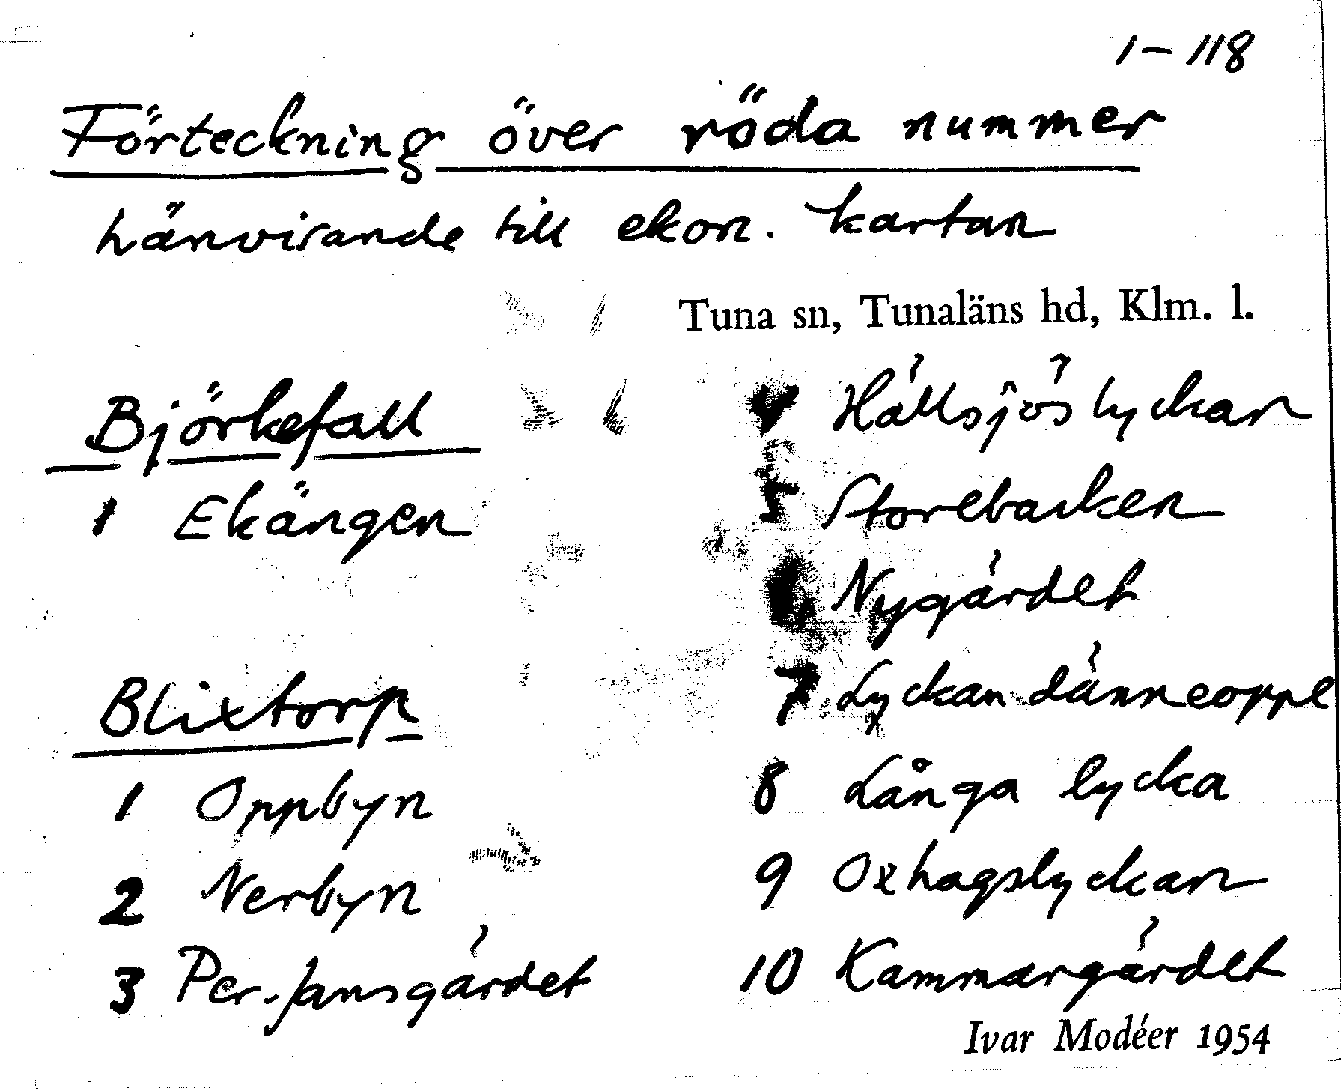 1-118
Förteckning över röda nummer
hänvisande till ekon. kartan
Tuna sn, Tunaläns hd, Klm. l.
Björkefall
1 Ekängen
Blixtorp
1 Oppbyn
2 Nerbyn
3 Per-Jansgärdet
4 Hållsjöslyckan
5 Storebacken
6 Nygärdet
7 Lyckan dänneoppe
8 Långa lycka
9 Oxhagslyckan
10 Kammargärdet
Ivar Modéer 1954